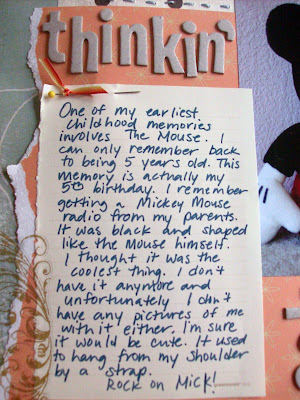 thinkin'
One of my earliest
childhood memories
involves The Mouse. I
can only remember back
to being 5 years old. This
memory is actually my
5th birthday. I remember
getting a Mickey Mouse
radio from my parents.
It was black and shaped
like the Mouse himself.
I thought it was the
coolest thing. I don't
have it anymore and
unfortunately I don't
have any pictures of me
with it either. I'm sure
it would be cute. It used
to hang from my shoulder
by a strap.
Rock on Mick!